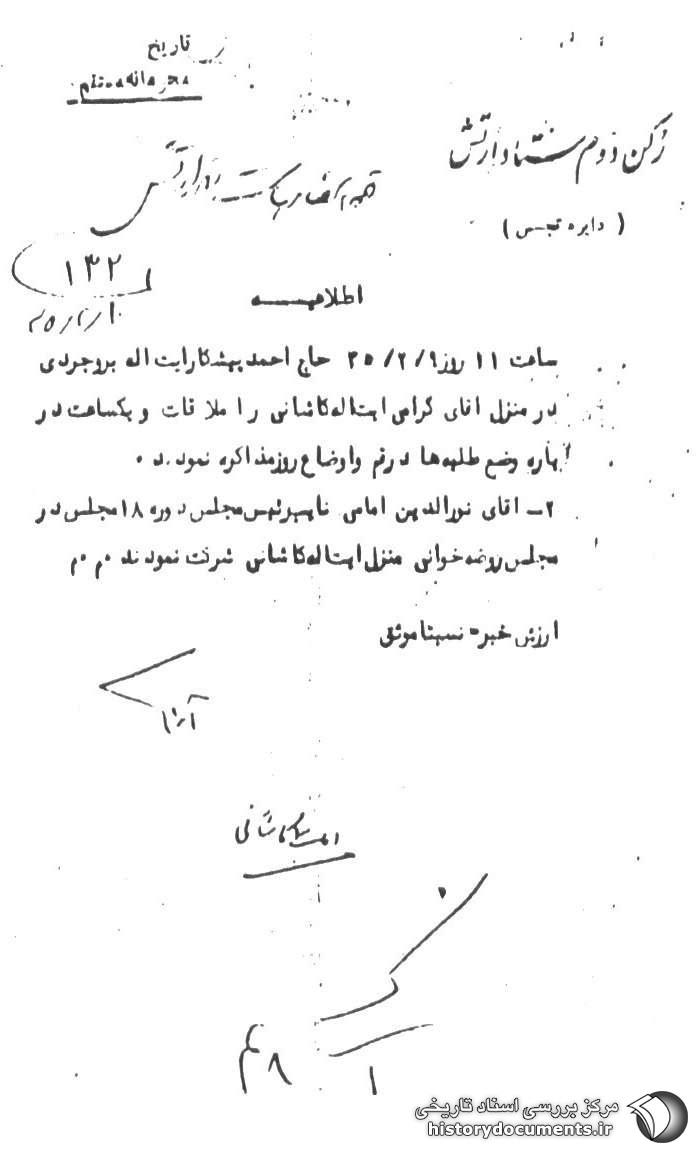 تاریخ
محرمانه مستقیم
رکن دوم ستاد ارتش
(دایره تجسس)
۱۳۲
اطلاعیه
ساعت ۱۱ روز ۹/ ۲/ ۳۵ حاج احمد پیشکار ایت اله بروجردی
در منزل اقای گرامی ایت اله کاشانی را ملاقات و یکساعت در
باره وضع طلبه ها در قم و اوضاع روز مذاکره نمودند ۰
۲ــ اقای نورالدین امامی نایب رئیس مجلس دوره ۱۸ مجلس در
مجلس روضه خوانی منزل ایت اله کاشانی شرکت نمودند ۰م ۰م
ارزش خبر= نسبتا موثق
ایت اله کاشانی
۱
۸
مرکز بررسی اسناد تاریخی
historydocuments.ir